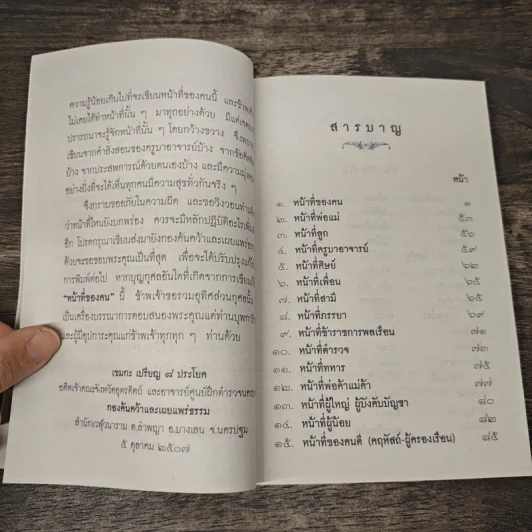 ความรู้น้อยเกินไปที่จะเขียนหน้าที่ของคนนี้ และข้าพเจ้า
ไม่เคยได้ทำหน้าที่นั้น ๆ มาทุกอย่างด้วย มีแต่เจตนา
ปรารถนาจะรู้จักหน้าที่นั้น ๆ โดยกว้างขวาง จึงพยายาม
เขียนจากคำสั่งสอนของครูบาอาจารย์บ้าง จากข้อคิดเห็น
บ้าง จากประสบการณ์ด้วยตนเองบ้าง และมีความมุ่งหมาย
อย่างยิ่งที่จะได้เห็นทุกคนมีความสุขทั่วกันจริง ๆ
จึงกราบขออภัยในความผิด และขอวิงวอนท่าน
ว่าหน้าที่ไหนยังบกพร่อง ควรจะมีหลักปฏิบัติอะไรเพิ่ม
อีก โปรดกรุณาเขียนส่งมายังกองค้นคว้าและเผยแพร่ธรรม
ด้วยจะขอบพระคุณเป็นที่สุด เพื่อจะได้ปรับปรุงแก้ไข
การพิมพ์ต่อไป หากบุญกุศลอันใดที่เกิดจากการเขียน
"หน้าที่ของคน" นี้ ข้าพเจ้าขอรวมอุทิศส่วนกุศลนั้น
เป็นเครื่องบรรณาการตอบสนองพระคุณแด่ท่านบุพการี
และผู้มีอุปการะคุณแก่ข้าพเจ้าทุกทุก ๆ ท่านด้วย
เขมกะ เปรียญ ๘ ประโยค
อดีตเจ้าคณะจังหวัดอุตรดิตถ์ และอาจารย์ศูนย์ฝึกตำรวจนครปฐม
กองค้นคว้าและเผยแพร่ธรรม
สำนักเวฬุวนาราม ต.ลำพญา อ.บางเลน จ.นครปฐม
๕ ตุลาคม ๒๕๐๗
สารบาญ
หน้า
๑. หน้าที่ของคน ๑
๒. หน้าที่พ่อแม่ ๕๓
๓. หน้าที่ลูก ๕๖
๔. หน้าที่ครูบาอาจารย์ ๕๙
๕. หน้าที่ศิษย์ ๖๒
๖. หน้าที่เพื่อน ๖๕
๗. หน้าที่สามี ๖๕
๘. หน้าที่ภรรยา ๖๙
๙. หน้าที่ข้าราชการพลเรือน ๗๑
๑๐. หน้าที่ตำรวจ ๗๓
๑๑. หน้าที่ทหาร ๗๕
๑๒. หน้าที่พ่อค้าแม่ค้า ๗๗
๑๓. หน้าที่ผู้ใหญ่ ผู้บังคับบัญชา ๘๐
๑๔. หน้าที่ผู้น้อย ๘๒
๑๕. หน้าที่ของคนดี (คฤหัสถ์-ผู้ครองเรือน) ๘๕